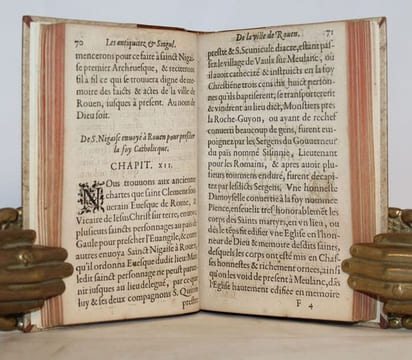 70 Les antiquitez, & Singul.
mencerons pour ce faire à sainct Nigai-
se premier Archeuesque, & reciterons
fil à fil ce qui se trouuera digne de me-
moire des faicts & actes de la ville de
Rouen, iusques à present. Au nom de
Dieu soit.
De S. Nigaise enuoyé à Rouen pour prescher
la foy Catholicque.
CHAPIT. XII.
Nous trouuons aux anciennes
chartes que sainct Clement son
Euesque de Rome, &
Vicaire de Iesus Christ sur terre, enuoya
plusieurs saincts personnages au païs de
Gaule pour prescher l'Euangile, & entre
autres enuoya Sainct Nigaise à Rouen,
qu'il ordonna Euesque dudit lieu: Mais
ledit sainct personnage ne peust parue-
nir iusques au lieu delegué, par ce que
luy & ses deux compagnons S. Quirin
prestre
De la ville de Rouen. 71
prestre & S. Scuuicule diacre, estans pas-
sez le village de Vaulx sur Meulanc, où
il auoit cathecizé & instruicts en la foy
Chrestiēne trois cens dix huict person-
nes qu'ils baptiserent, se transporterent
& vindrent au lieu dict, Monstiers pres
la Roche-Guyon, ou ayant de rechef
conuerti beaucoup de gens, furent em-
poignez par les Sergens du Gouuerneur
du païs nommé Sisinnie, Lieutenant
pour les Romains, & apres auoir plu-
sieurs tourments enduré, furent decapi-
tez par lesdicts Sergens, Vne honneste
Damoyselle conuertie à la foy nommee
Pience, enseuelit tres-honorablemēt les
corps des Saincts martyrs, en vn lieu, ou
dés le tēps fit edifier vne Eglise en l'hon-
neur de Dieu & memoire desdits saints,
desquels les corps ont esté mis en Chas-
ses honnestes & richement ornees, ainsi
qu'on les void de present à Meulanc, dās
l'Eglise hautement edifiee en memoire
F 4